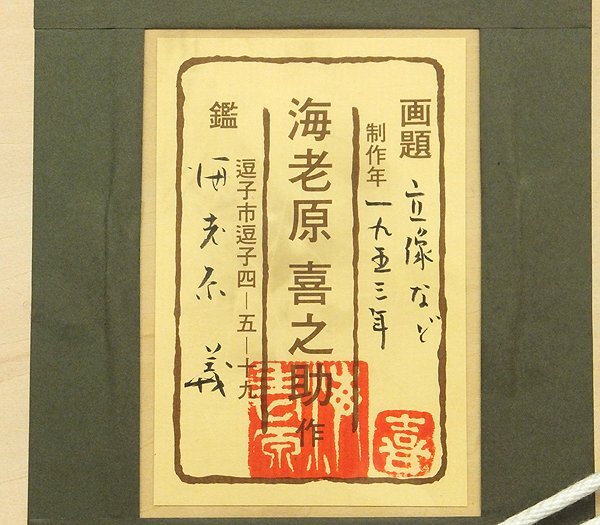 画題 立像など
制作年 一九五三年
海老原 喜之助 作
鑑 海老原 義
逗子市逗子四-五-十九
喜